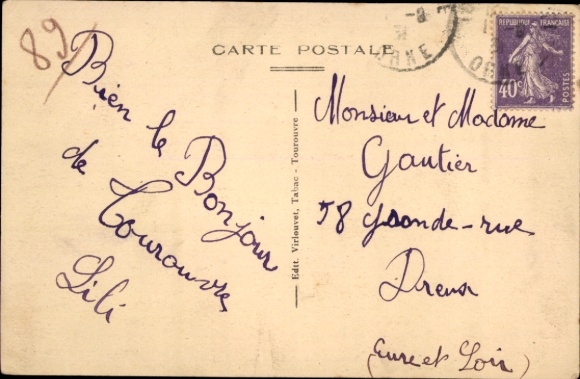 89
CARTE POSTALE
REPUBLIQUE FRANÇAISE
POSTES
40c
ORNE
Bien le Bonjour
de Tourouvre
Lili
Edit. Virlouvet, Tabac - Tourouvre
Monsieur et Madame
Gautier
58 Grande-rue
Dreux
(Eure et Loir)